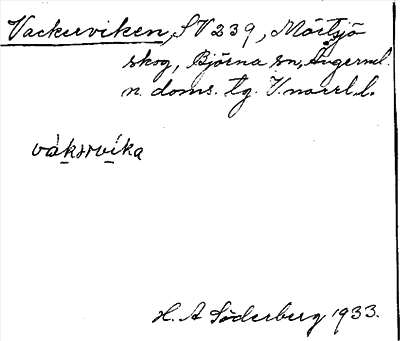 Vackerviken, SV 239, Mörtsjö
skog, Björna sn, Ångerml.
n. doms. tg. V.norrl. l.
våkərvika
H. A Söderberg 1933.